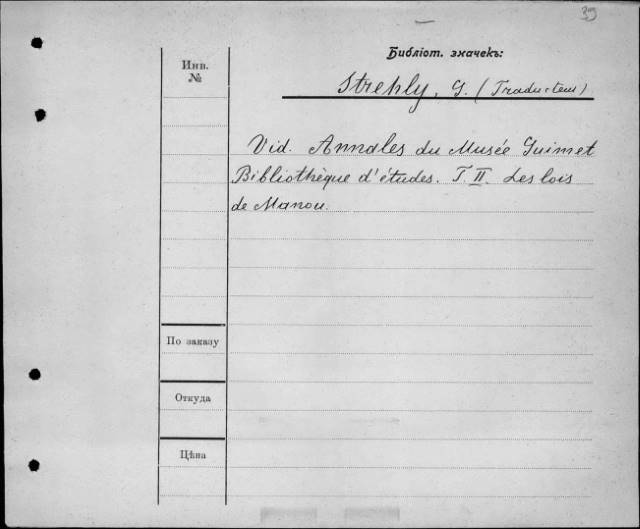 39
Библіот. значекъ:
Инв.
№
Strehly, G. (Traducteur)
Vid. Annales du Musée Guimet
Bibliothèque d'études. T. II. Les lois
de Manou.
По заказу
Откуда
Цѣна